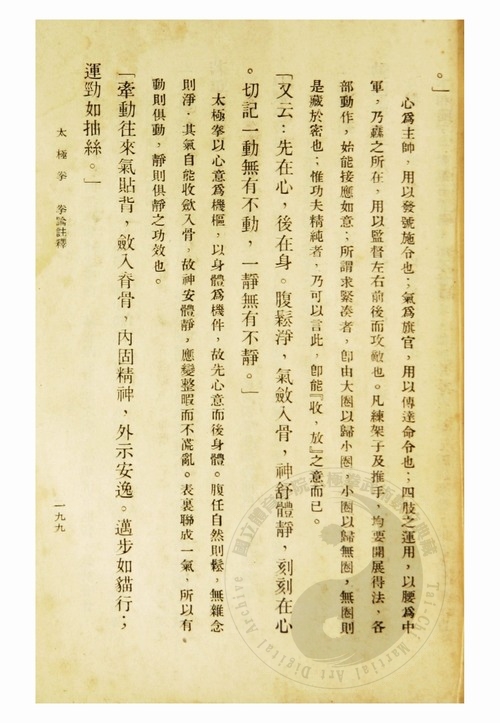 。」
心爲主帥，用以發號施令也；氣爲旗官，用以傳達命令也；四肢之運用，以腰爲中
軍，乃纛之所在，用以監督左右前後而攻敵也。凡練架子及推手，均要開展得法，各
部動作，始能接應如意；所謂求緊凑者，卽由大圈以歸小圈，小圈以歸無圈，無圈則
是藏於密也；惟功夫精純者，乃可以言此，卽能『收，放』之意而已。
「又云：先在心，後在身。腹鬆淨，氣斂入骨，神舒體靜，刻刻在心
。切記一動無有不動，一靜無有不靜。」
太極拳以心意爲機樞，以身體爲機件，故先心意而後身體。腹任自然則鬆，無雜念
則淨．其氣自能收斂入骨，故神安體靜，應變整暇而不慌亂。表裏聯成一氣，所以有。
動則俱動，靜則俱靜之功效也。
「牽動往來氣貼背，斂入脊骨，內固精神，外示安逸。邁步如貓行；，
運勁如抽絲。」
太極拳 拳論註釋
一九九
國立體育
Tai-Chi Martial Art Digital Archive